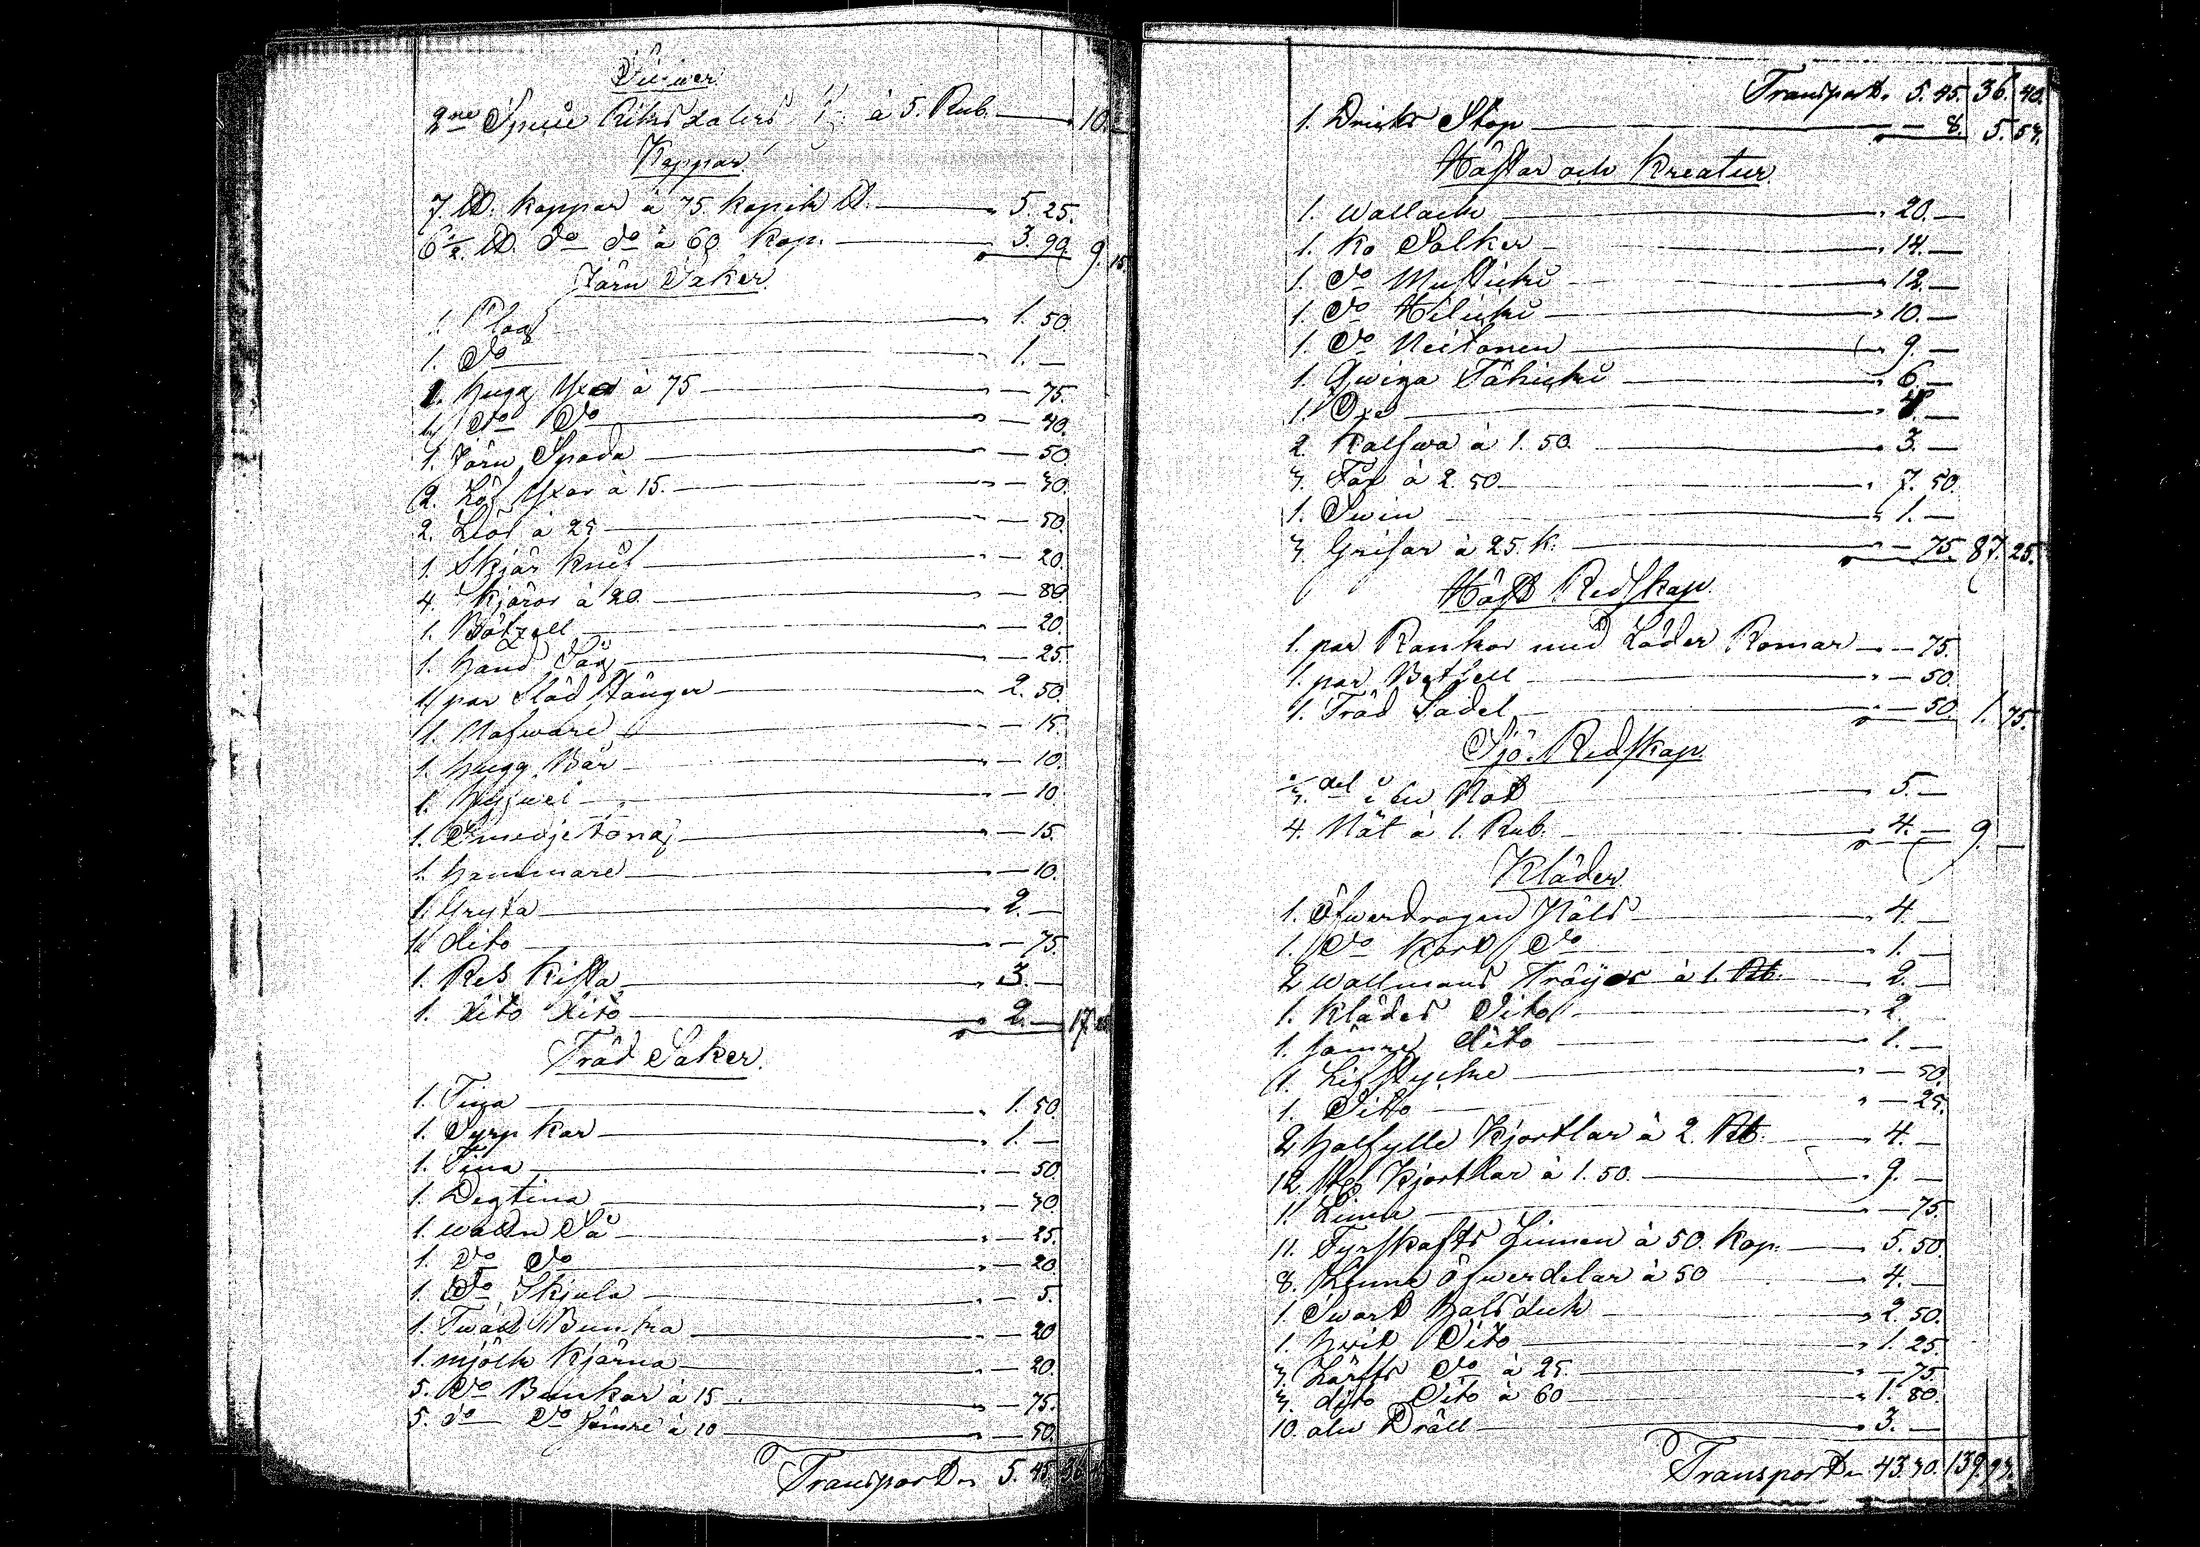 Silfwer
2ne Specie Riksdalers à 5. Rub. 10. —
Koppar
7 ℔. koppar à 75 kopik ℔. 5. 25.
6½ ℔. do do à 60 kop. 3. 90. 9. 15.
Järn Saker
1. Plog 1. 50.
1. Do 1. —
1. hugg Yxa à 75 — 75.
1. do Do — 40.
1. Järn Spada — 50.
2. Löf Yxor à 15. — 30.
2. Liar à 25 — 50.
1. Skjär knif — 20.
4. Skjäror à 20. — 80
1. Betzell — 20.
1. hand Såg — 25.
1. par Släd Stänger 2. 50.
1. Nafware — 15.
1. hugg Bår — 10.
1. — 10
1. — 15.
1. hammare — 10.
1. Gryta 2. —
1. dito — 75.
1. Res Kista 3. —
1. dito dito 2. — 17.
Träd Saker.
1. Tina 1. 50.
1. Syrp kar 1. —
1. Tina — 50.
1. Degtina — 30.
1. watten Så — 25.
1. Do Do — 20.
1. Do Skjula — 5.
1. Bunka — 20
1. mjölk Kjärna — 20.
5. Do Bunkar à 15 — 75.
5. do Do sämre à 10 — 50.
Transport 5. 45. 36.
Transport. 5. 45. 36. 40.
1. Dricks Stop — 8. 5. 53.
Hästar och Kreatur.
1. Wallack 20. —
1. Ko Solker 14. —
1. Do Musticki 12. —
1. Do Helicki 10. —
1. Do Neitonen 9. —
1. Qwiga Tähicki 6. —
1. Oxe —
2. Kalfwa à 1. 50. 3. —
3. Får à 2. 50. 7. 50.
1. Swin 1. —
3. Grisar à 25. K. — 75. 87. 25.
Häst Redskap.
1. par Rankor med Läder Romar — 75.
1. par Betsell — 50.
1. Träd Sadel — 50. 1. 75.
Sjö Redskap.
del i en Not 5. —
4. Nät à 1. Rub. 4. — 9. —
Kläder
1. Öfwerdragen Päls 4. —
1. Do Kort Do 1. —
2 wallmans Tröyor à 1. Rb. 2. —
1. Klädes Dito 2.
1. sämre dito 1. —
1. Lifstycke — 50.
1. Dito — 25.
2 halfylle Kjortlar à 2. Rb. 4. —
Kjortlar à 1. 50. 9. —
— 75.
11. Fyrskafts Linnen à 50. Kop. 5. 50.
8. Linne Öfwerdelar à 50 4. —
1. Swart halsduk 2. 50.
1. hwit Dito 1. 25.
3. Lärfts Do à 25. — 75.
3. dito Dito à 60 1. 80.
10. aln Dräll 3. —
Transport 43. 30. 139. 93.